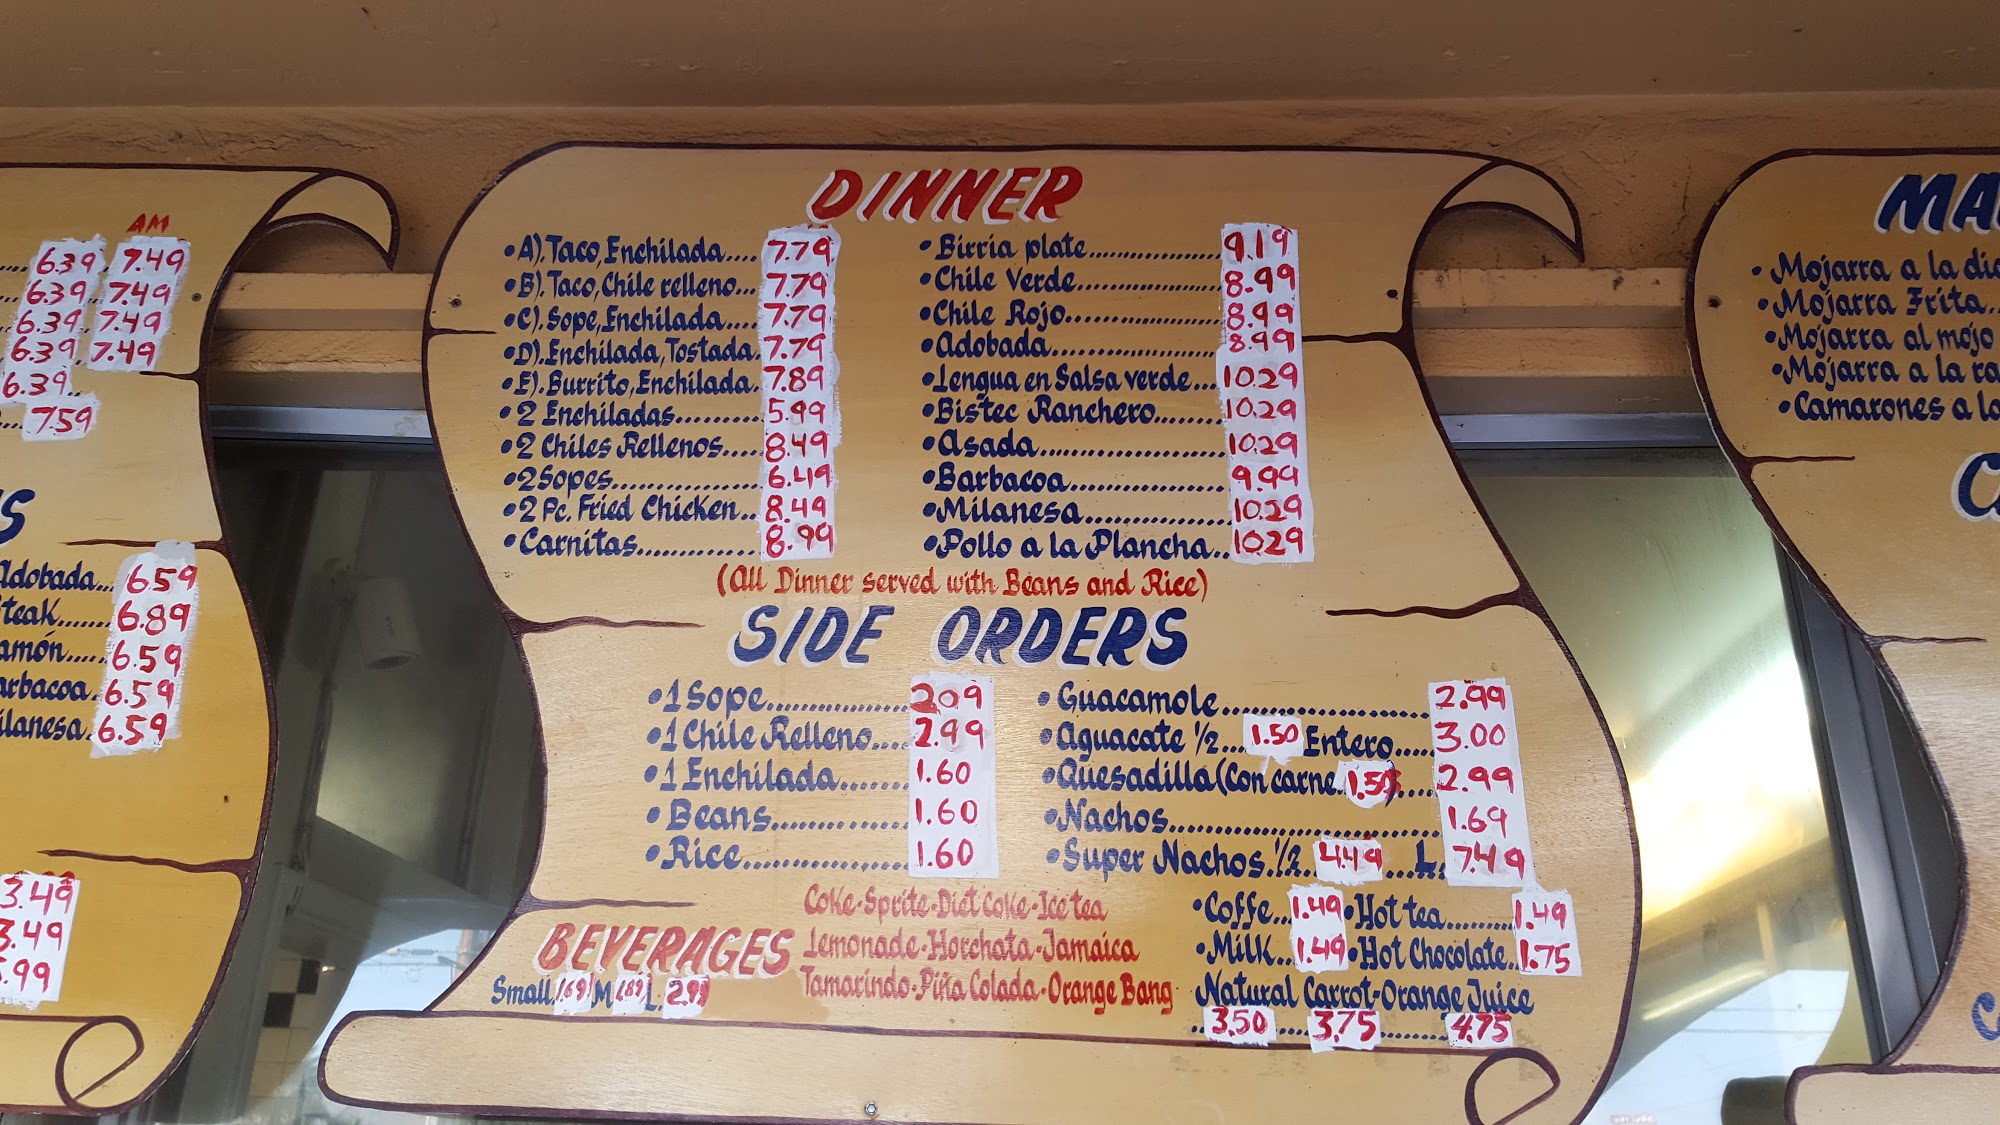 AM
6.39 7.49
6.39 7.49
6.39 7.49
6.39 7.49
6.39
7.59
S
Adobada... 6.59
teak...... 6.89
amón..... 6.59
arbacoa. 6.59
ilanesa. 6.59
3.49
3.49
.99
DINNER
•A). Taco, Enchilada.... 7.79
•B). Taco, Chile relleno... 7.79
•C). Sope, Enchilada.... 7.79
•D). Enchilada, Tostada. 7.79
•E). Burrito, Enchilada. 7.89
•2 Enchiladas......... 5.99
•2 Chiles Rellenos..... 8.49
•2 Sopes............... 6.49
•2 Pc. Fried Chicken... 8.49
•Carnitas............. 8.99
•Birria plate.................. 9.19
•Chile Verde................... 8.99
•Chile Rojo.................... 8.99
•Adobada...................... 8.99
•Lengua en Salsa verde... 10.29
•Bistec Ranchero......... 10.29
•Asada........................ 10.29
•Barbacoa................... 9.99
•Milanesa.................. 10.29
•Pollo a la Plancha.. 10.29
(All Dinner served with Beans and Rice)
SIDE ORDERS
•1 Sope.................. 2.09
•1 Chile Relleno.... 2.99
•1 Enchilada........ 1.60
•Beans................ 1.60
•Rice.................. 1.60
•Guacamole......................... 2.99
•Aguacate ½.... 1.50 Entero..... 3.00
•Quesadilla (Con carne. 1.50).... 2.99
•Nachos.............................. 1.69
•Super Nachos. ½.. 4.49 ...L. 7.49
BEVERAGES
Small. 1.69 M 1.89 L. 2.99
Coke-Sprite-Diet Coke-Ice tea
Lemonade-Horchata-Jamaica
Tamarindo-Piña Colada-Orange Bang
•Coffe... 1.49 •Hot tea......... 1.49
•Milk... 1.49 •Hot Chocolate.. 1.75
Natural Carrot-Orange Juice
.. 3.50 ..... 3.75 ........ 4.75
MA
•Mojarra a la dia
•Mojarra Frita..
•Mojarra al mojo
•Mojarra a la ra
•Camarones a la
C
C